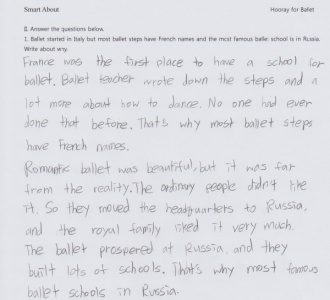 Smart About
Hooray for Ballet
B. Answer the questions below.
1. Ballet started in Italy but most ballet steps have French names and the most famous ballet school is in Russia.
Write about why.
France was the first place to have a school for
ballet. Ballet teacher wrote down the steps and a
lot more about how to dance. No one had ever
done that before. That's why most ballet steps
have French names.
Romantic ballet was beautiful, but it was far
from the reality. The ordinary people didn't like
it. So they moved the headquarters to Russia,
and the royal family liked it very much.
The ballet prospered at Russia. and they
built lots of schools. That's why most famous
ballet schools in Russia.